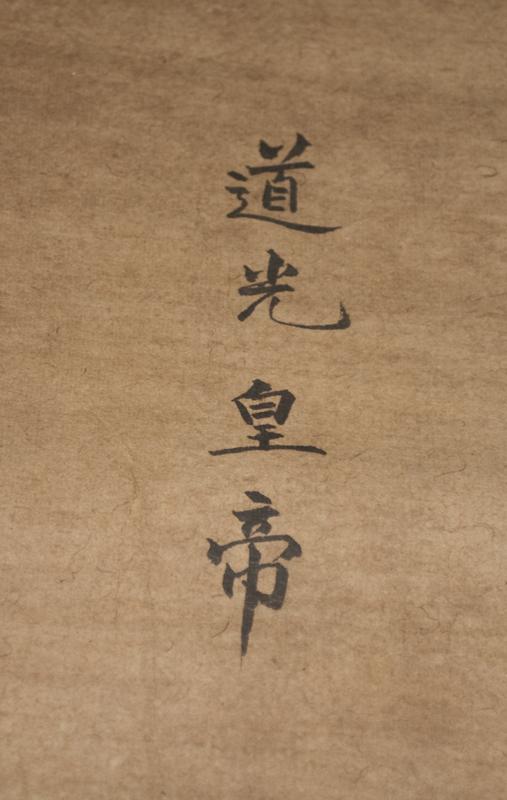 道光皇帝